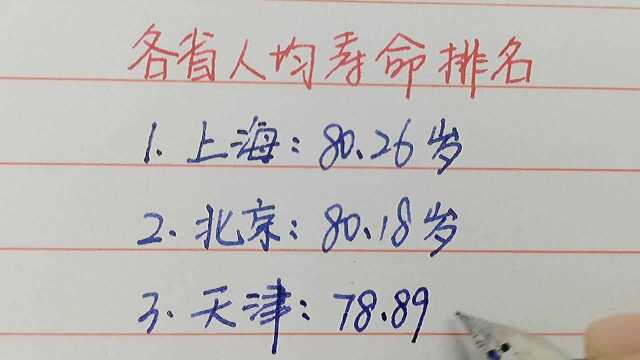 各省人均寿命排名
1. 上海：80.26岁
2. 北京：80.18岁
3. 天津：78.89